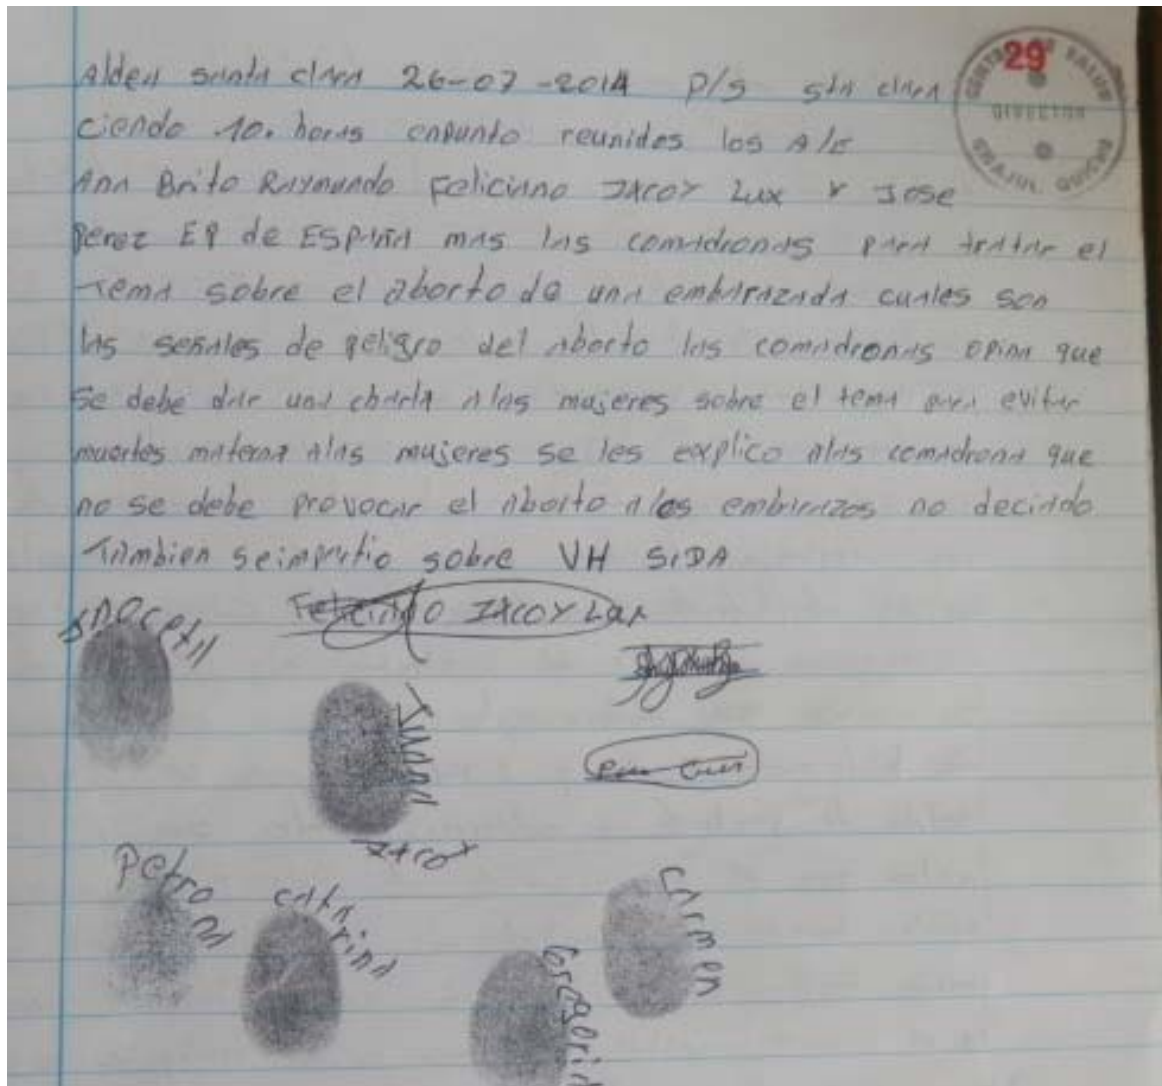 Aldea santa clara 26-07-2014 P/S sta clara
ciendo 10. horas enpunto reunidos los A/E
Ana Brito Raymundo Feliciano IACOY Lux Y Jose
Perez EP de ESPAÑA mas las comadronas para tratar el
tema sobre el aborto de una embarazada cuales son
las señales de peligro del aborto las comadronas opinan que
se debe dar una charla alas mujeres sobre el tema para evitar
muertes materna alas mujeres se les explico alas comadrona que
no se debe provocar el aborto alos embarazos no deciado
Tambien seimpartio sobre VH SIDA
29
CENTRO DE SALUD
DIRECTOR
CHAJUL QUICHE
Feliciano IACOY Lux
Juana
Petrona
catarina
Gregoria
Carmen